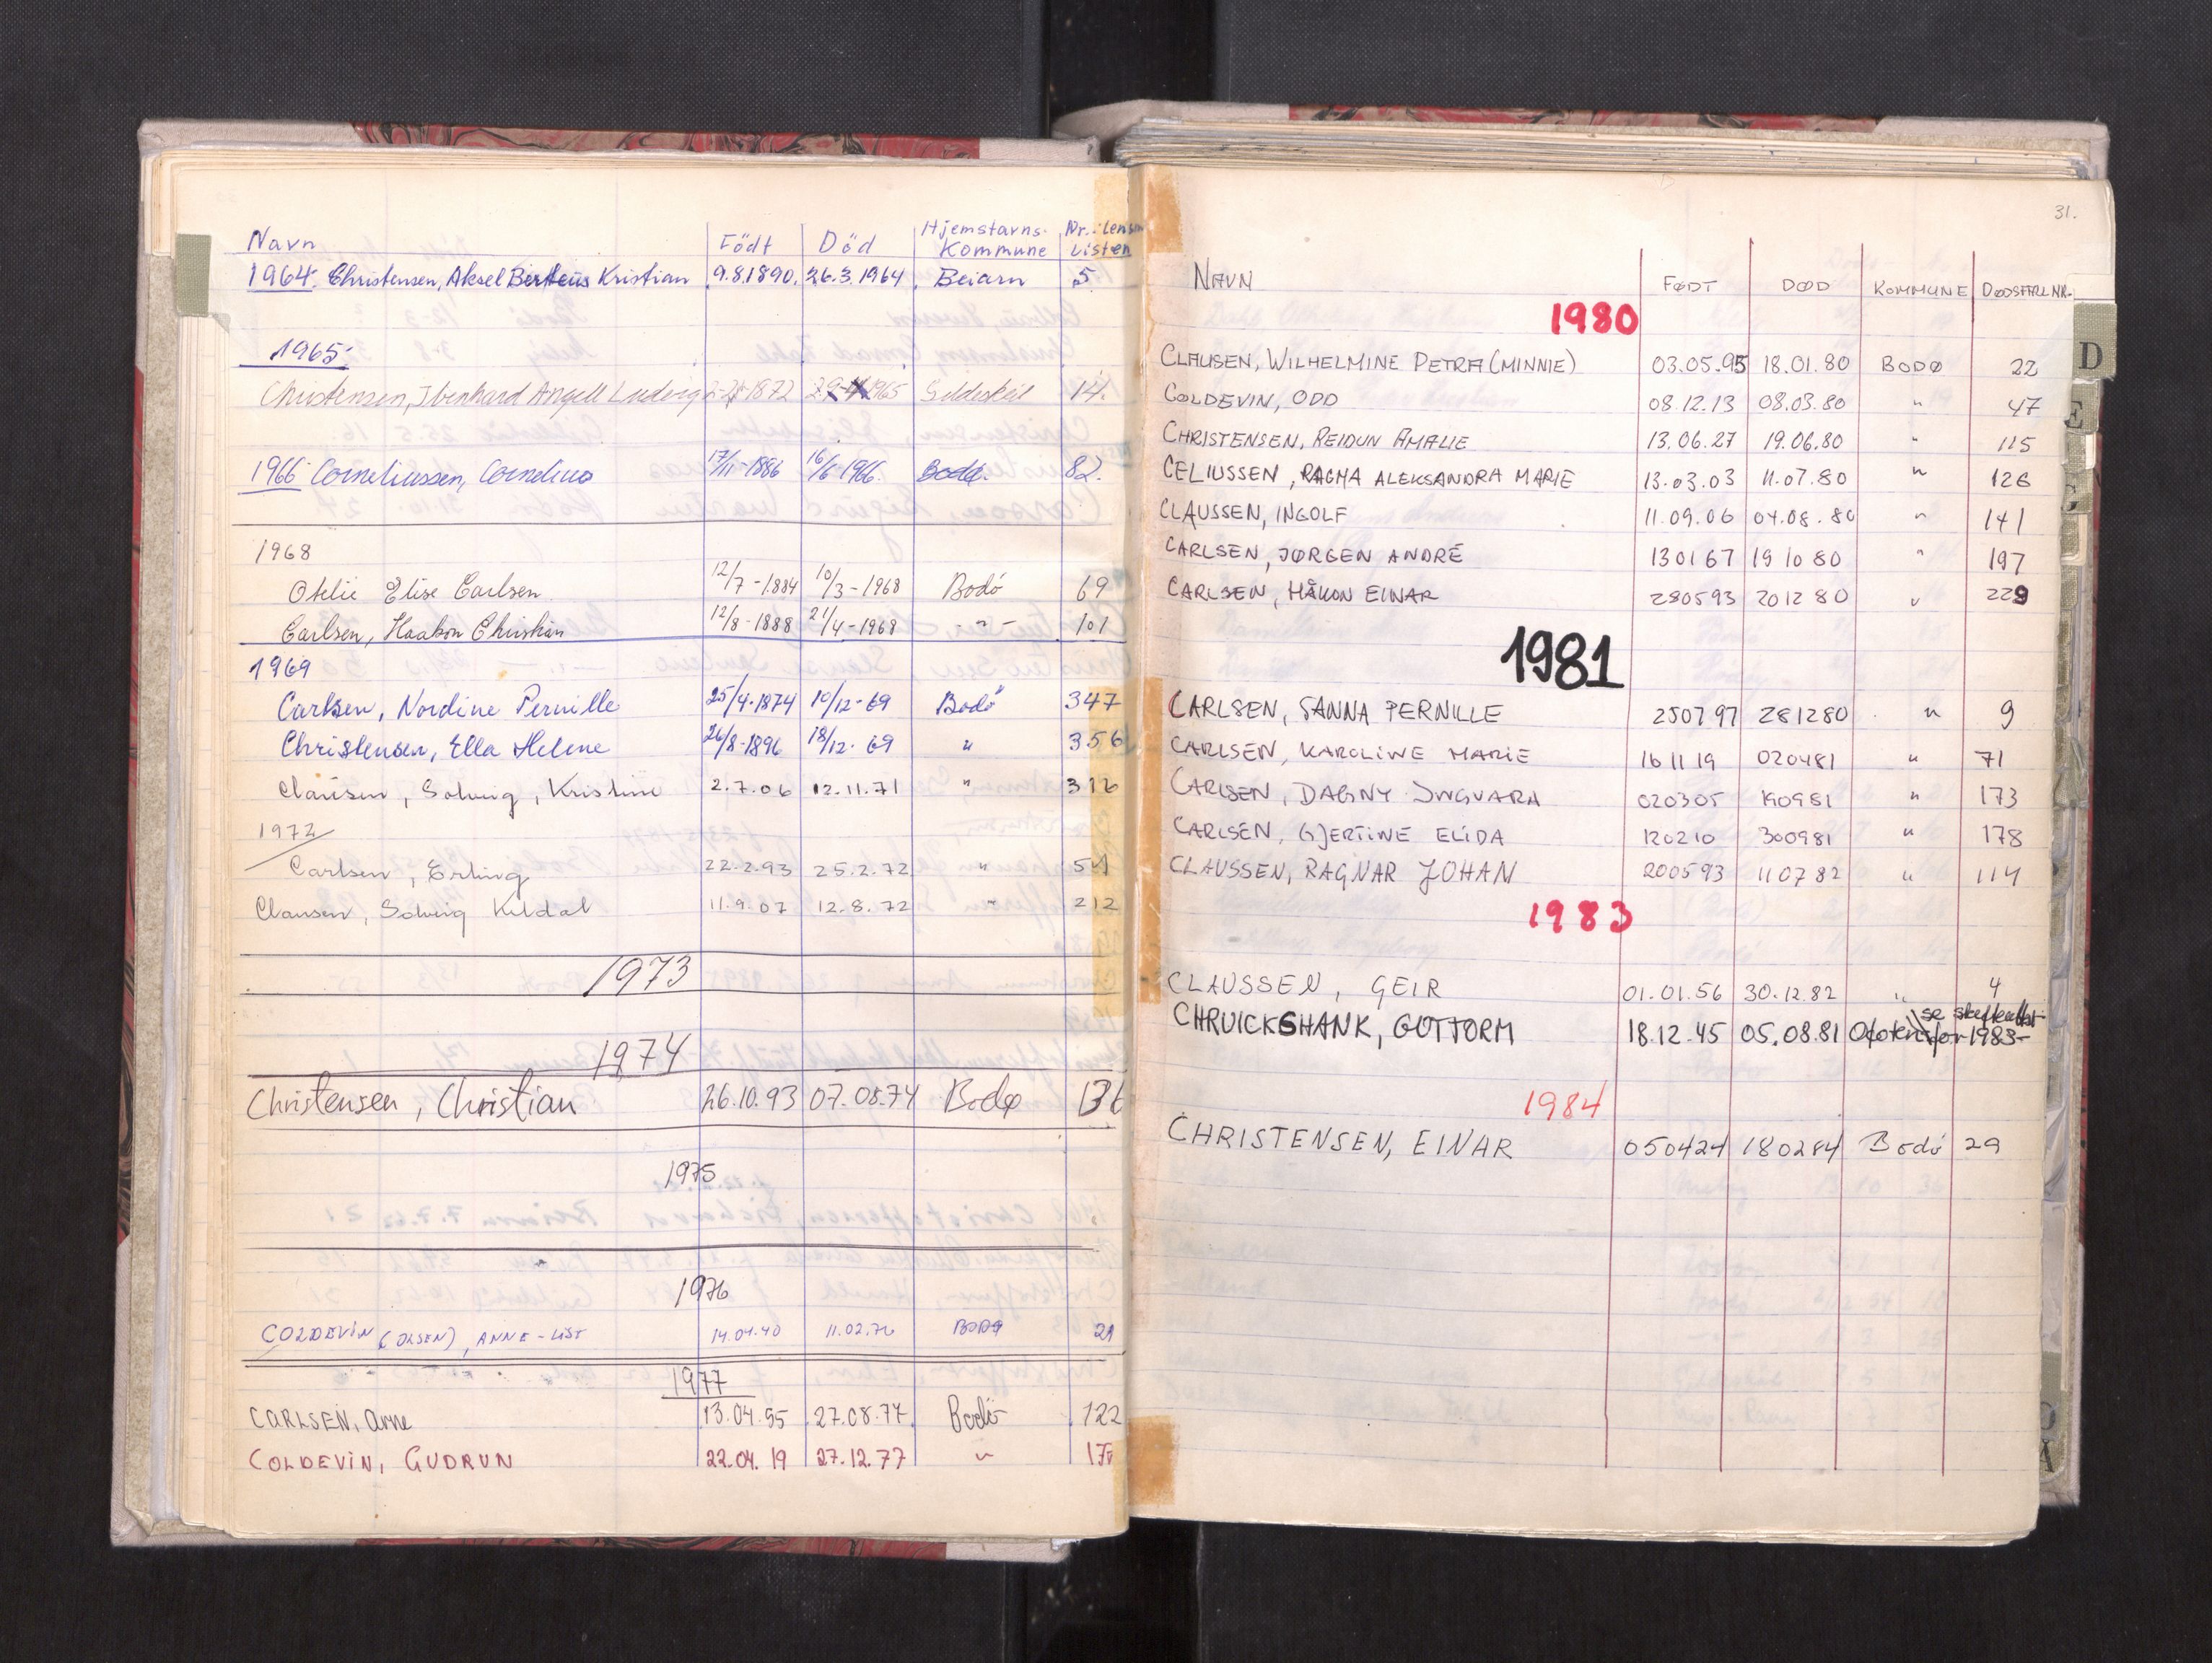 Navn Födt Död Hjemstavns- Kommune Nr. i lensm Listen
1964: Christensen, Aksel Berteus Kristian 9.8.1890. 26.3.1964 Beiarn 5
1965:
Christensen, Ibenhard Angell Ludvig 1872 1965 Gildeskål 14.
1966 Corneliussen, Cornelius 17/11-1886 16/6-1966. Bodø. 82.
1968
Otelie Elise Carlsen 12/7-1884 10/3-1968 Bodö 69
Carlsen, Haakon Christian 12/8-1888 21/4-1968 -"- 101
1969
Carlsen, Nordine Pernille 25/4-1874 10/12-69 Bodö 347
Christensen, Ella Helene 26/8-1896 18/12-69 " 356
Clausen, Solveig, Kristine 2.7.06 12.11.71 " 316
1972
Carlsen, Erling 22.2.93 25.2.72 " 54
Clausen, Solveig Kildal 11.9.07 12.8.72 " 212
1973
1974
Christensen, Christian 26.10.93 07.08.74 Bodø 136
1975
1976
COLDEVIN (OLSEN), ANNE-LISE 14.04.40 11.02.76 BODØ 21
1977
CARLSEN, Arne 13.04.95 27.08.77 Bodö 122
COLDEVIN, GUDRUN 22.04.19 27.12.77 "
31.
NAVN FØDT DØD KOMMUNE DØDSFALL NR.
1980
CLAUSEN, WILHELMINE PETRA (MINNIE) 03.05.95 18.01.80 BODØ 22
COLDEVIN, ODD 08.12.13 08.03.80 " 47
CHRISTENSEN, REIDUN AMALIE 13.06.27 19.06.80 " 115
CELIUSSEN, RAGNA ALEKSANDRA MARIE 13.03.03 11.07.80 " 126
CLAUSSEN, INGOLF 11.09.06 04.08.80 " 141
CARLSEN, JØRGEN ANDRÉ 130167 191080 " 197
CARLSEN, HÅKON EINAR 280593 201280 " 229
1981
CARLSEN, SANNA PERNILLE 250797 281280 " 9
CARLSEN, KAROLINE MARIE 161119 020481 " 71
CARLSEN, DAGNY INGVARA 020305 190981 " 173
CARLSEN, GJERTINE ELIDA 120210 300981 " 178
CLAUSSEN, RAGNAR JOHAN 200593 110782 " 114
1983
CLAUSSEN, GEIR 01.01.56 30.12.82 " 4
CHRUICKSHANK, GUTTORM 18.12.45 05.08.81 Ofoten se for 1983-
1984
CHRISTENSEN, EINAR 050424 180284 Bodö 29
D
E